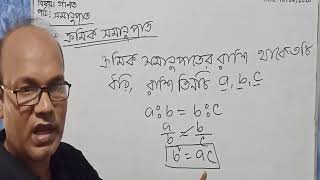 বিষয়: গণিত
পাঠ: সমানুপাত
ক্রমিক সমানুপাত
ক্রমিক সমানুপাতের রাশি থাকে ৩টি
ধরি, রাশি তিনটি a, b, c
a : b = b : c
a/b = b/c
b² = ac